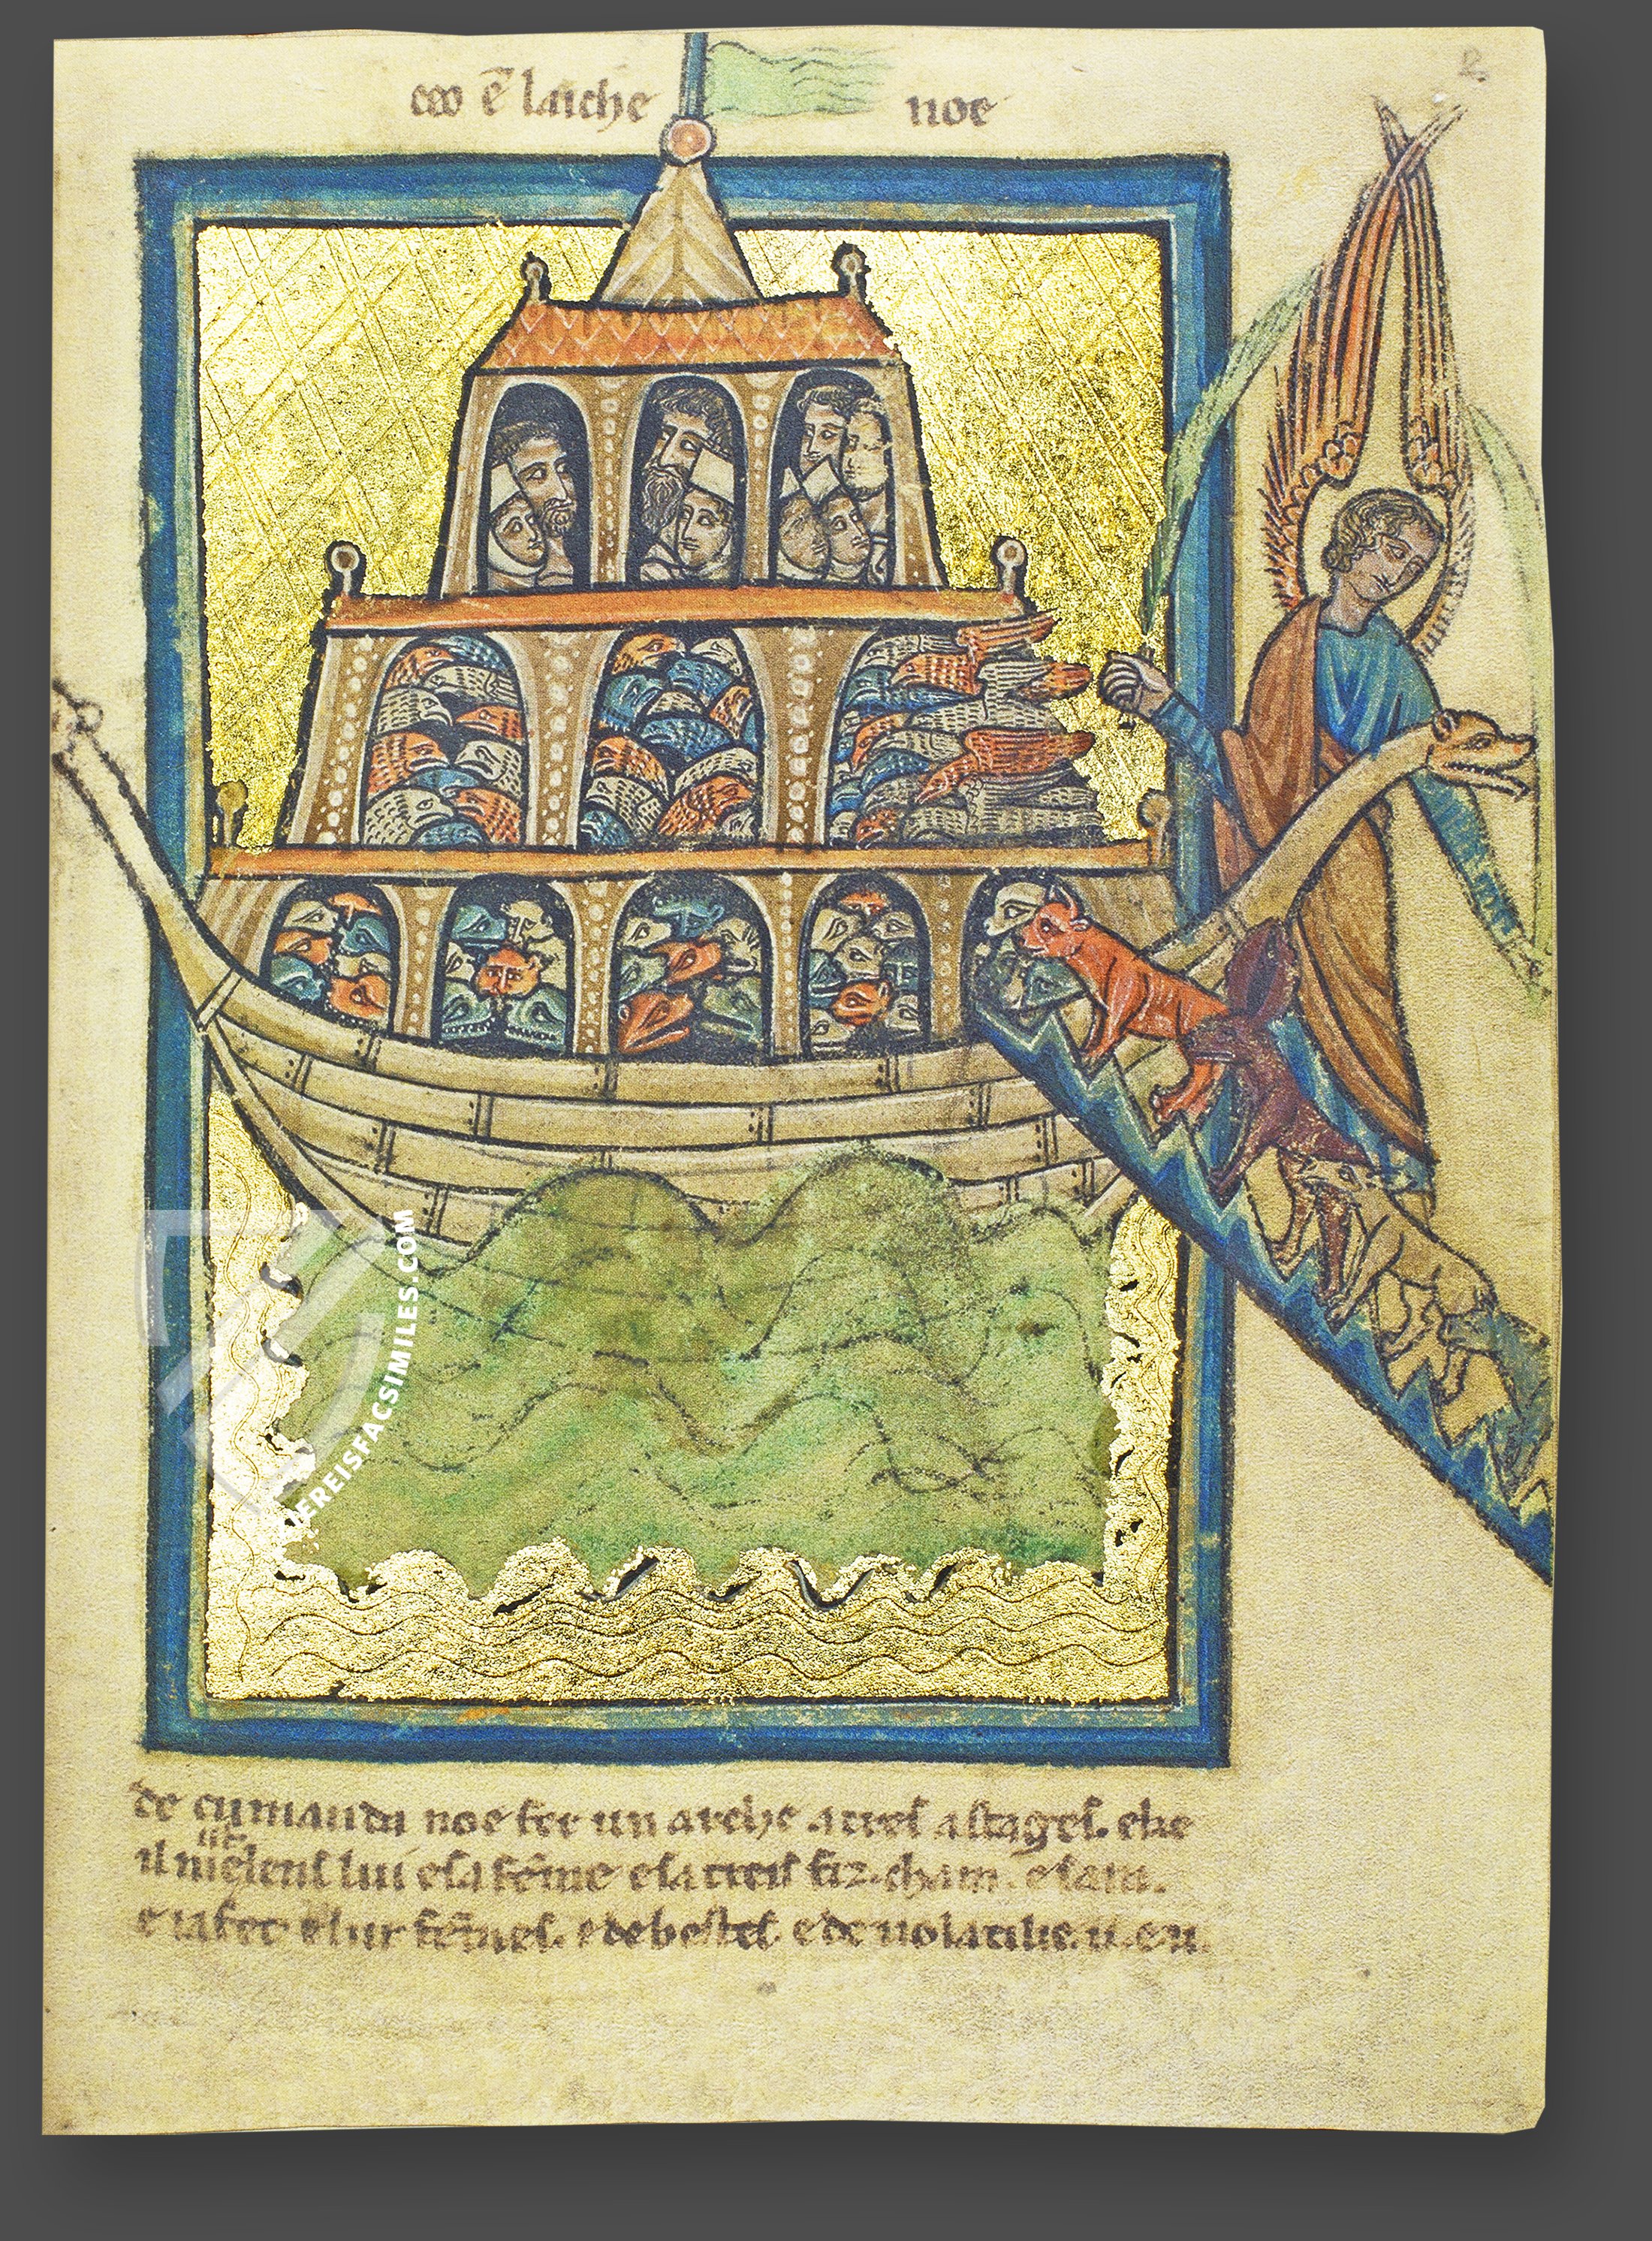 ceo ē laiche noe
2.
de cumandu noe fer un arche a treſ aſtageſ. ehe
il mēlenſ lui eſa fēme eſa treiſ fiz. cham. eſam.
e iafet. elur fēmeſ. e de beſteſ. e de uolatilie. u. en
VEREISFACSIMILES.COM